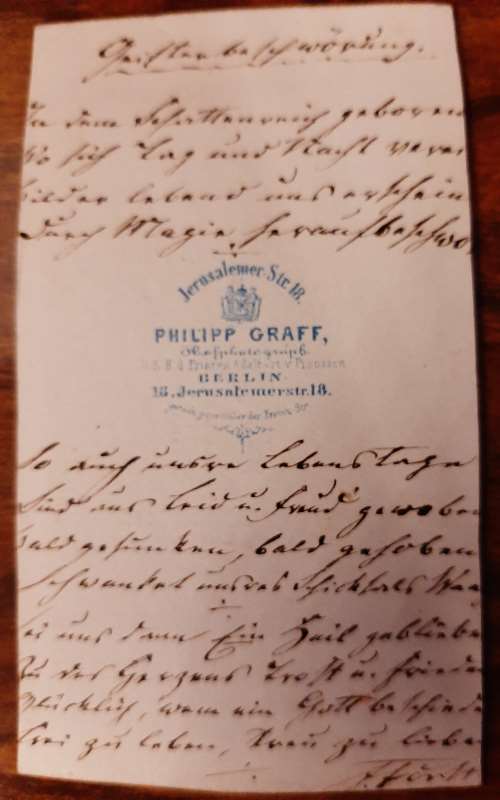 Geisterbeschwörung.
In dem Schattenreich geboren
Wo sich Tag und Nacht verei
Bilder lebend uns erschein
Durch Magie heraufbeschwo
Jerusalemer-Str. 18.
PHILIPP GRAFF,
Hofphotograph
S. K. H. d. Prinzen Adalbert v. Preussen
BERLIN
18. Jerusalemerstr. 18.
So auch unsre Lebenstage
Sind aus Leid u. Freud gewoben
Bald gesunken, bald gehoben
Schwanket unsres Schicksals Waa
Sei uns dann Ein Heil gebliebe
Zu des Herzens Trost u. Frieden
Glücklich, wem ein Gott beschiede
Frei zu leben, Treu zu liebe